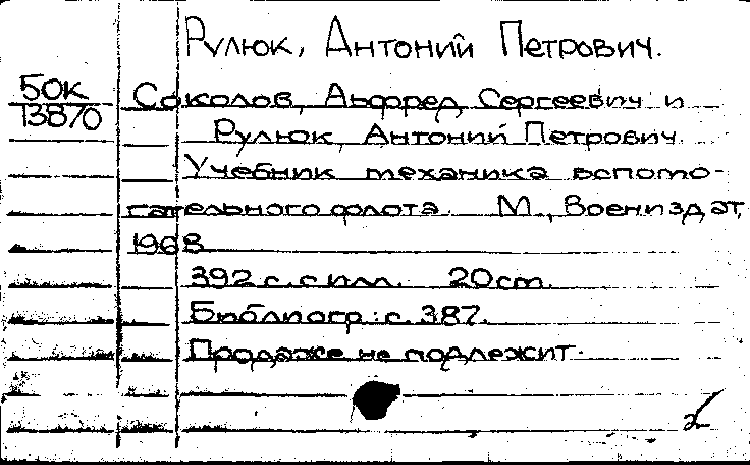 Рулюк, Антоний Петрович.
50К
13870
Соколов, Альфред Сергеевич и
Рулюк, Антоний Петрович.
Учебник механика вспомо-
гательного флота. М., Воениздат,
1968
392 с. с илл. 20 cm.
Библиогр.: с. 387.
Продаже не подлежит.
2